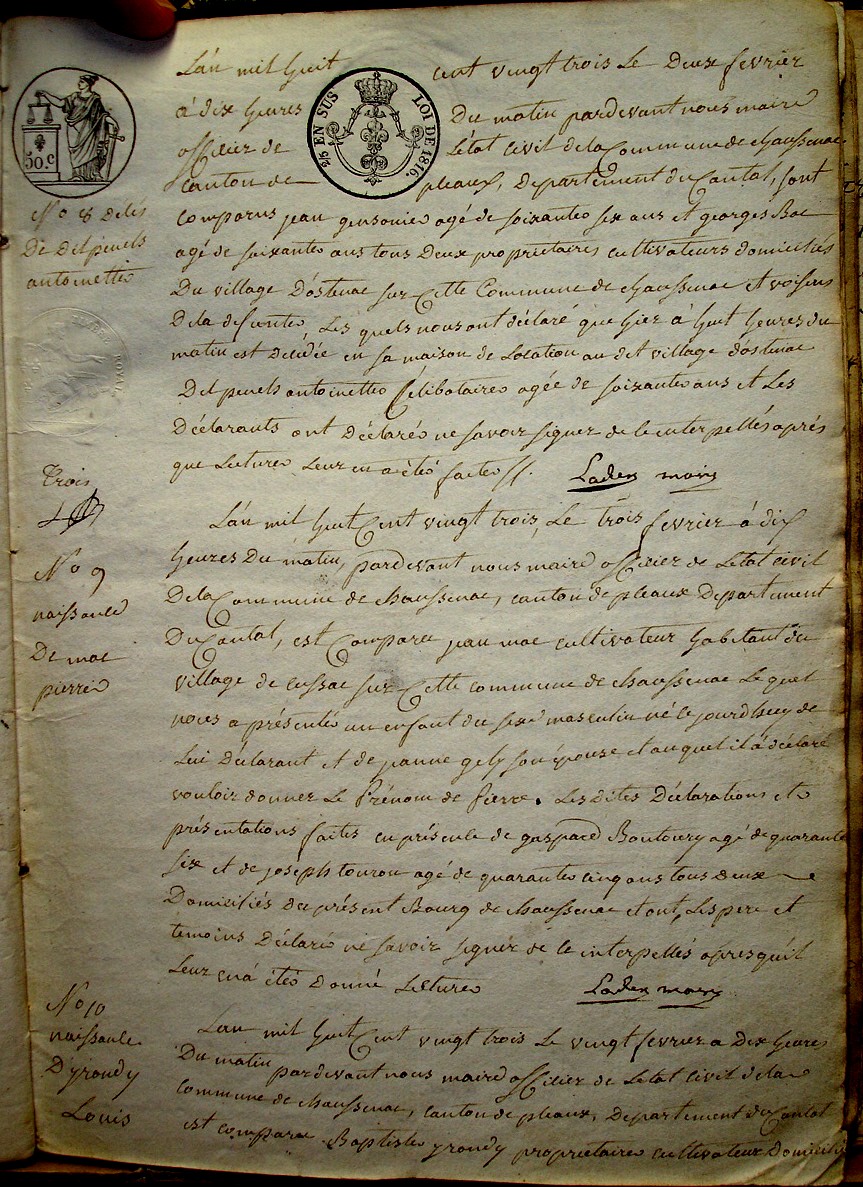 L'an mil huit cent vingt trois le deux fevrier
à dix heures du matin pardevant nous maire
officier de l'état civil de la Commune de chaussenac
canton de pleaux, departement du Cantal, sont
comparus jean gensonie agé de soixante six ans et georges Bac
agé de soixante ans tous deux proprietaires cultivateurs domiciliés
Du village d'ostenac sur Cette Commune de chaussenac et voisins
De la defunte, Les quels nous ont déclaré que hier à huit heures du
matin est décédée en sa maison de Location au dit village d'ostenac
Delpeuch antoinette Célibataire agée de soixante ans et Les
Déclarants ont Déclaré ne savoir signer de ce interpellés après
que Lecture Leur en a été faite //.
EN SUS LOI DE 1816.
50.c
No 8 décés
De Delpeuch
antoinette
trois
L'an mil huit Cent vingt trois, Le trois fevrier à dix
heures Du matin, pardevant nous maire officier de L'etat civil
De la Commune de chaussenac, canton de pleaux Departement
Du Cantal, est Comparu jean mac cultivateur habitant du
village de cussac sur Cette commune de chaussenac Le quel
nous a présenté un enfant du sexe masculin né ce jourd'huy de
Lui Déclarant et de jeanne gely son épouse et au quel il a déclaré
vouloir donner Le Prénom de Pierre. Les dites Déclarations et
présentations faites en présence de gaspard Boutoury agé de quarante
six et de joseph tourou agé de quarante cinq ans tous deux
Domiciliés du présent Bourg de chaussenac et ont, Les pere et
temoins Déclaré ne savoir signer de ce interpellés apres qu'il
Leur en a été donné Lecture
No 9
naissance
De mac
pierre
No 10
naissance
D'yrondy
Louis
L'an mil huit Cent vingt trois Le vingt fevrier a Dix heures
Du matin pardevant nous maire officier de L'etat Civil de la
commune de chaussenac, canton de pleaux, Departement du Cantal
est comparu Baptiste yrondy proprietaire cultivateur Domicilié